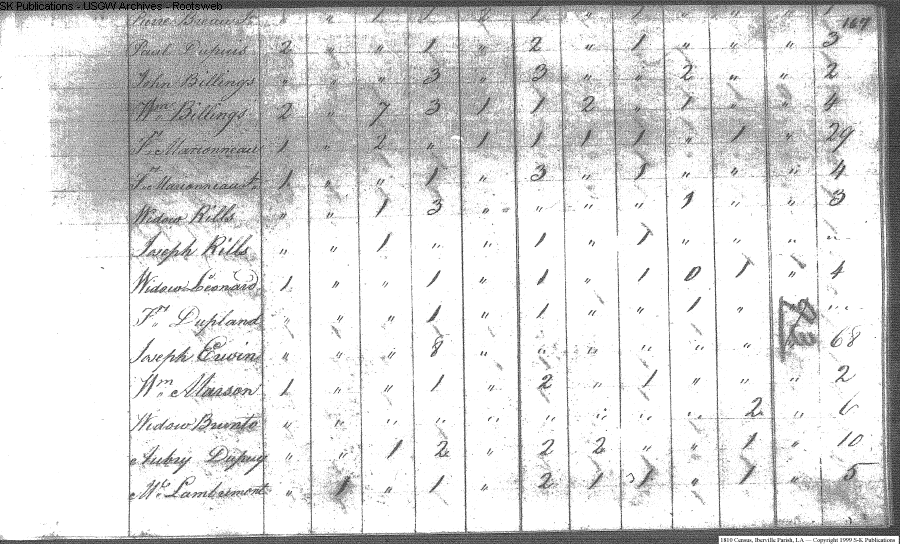 SK Publications - USGW Archives - Rootsweb
169
Paul Dupuis 2 " " 1 " 2 " 1 " " " 3
John Billings " " " 3 " 3 " " 2 " " 2
Wm Billings 2 " 7 3 1 1 2 " 1 " " 4
Fs Marionneau 1 " 2 " 1 1 1 1 " 1 " 29
Marionneau 1 " " 1 " 3 " 1 " " " 4
Widow Rills " " 1 3 " " " " 1 " " 3
Joseph Rills " " 1 " " 1 " 1 " " " "
Widow Leonard 1 " " 1 " 1 " 1 0 1 " 4
Fs Dupland " " " 1 " 1 " " 1 " "
Joseph Erwin " " " 8 " " " " " " 68
Wm Marson 1 " " 1 " 2 " 1 " " " 2
Widow Brunto " " " " " " " " " 2 " 6
Aubry Dupuy " " 1 2 " 2 2 " " 1 " 10
Lambremont " 1 " 1 " 2 1 1 " 1 " 5
1810 Census, Iberville Parish, LA — Copyright 1999 S-K Publications